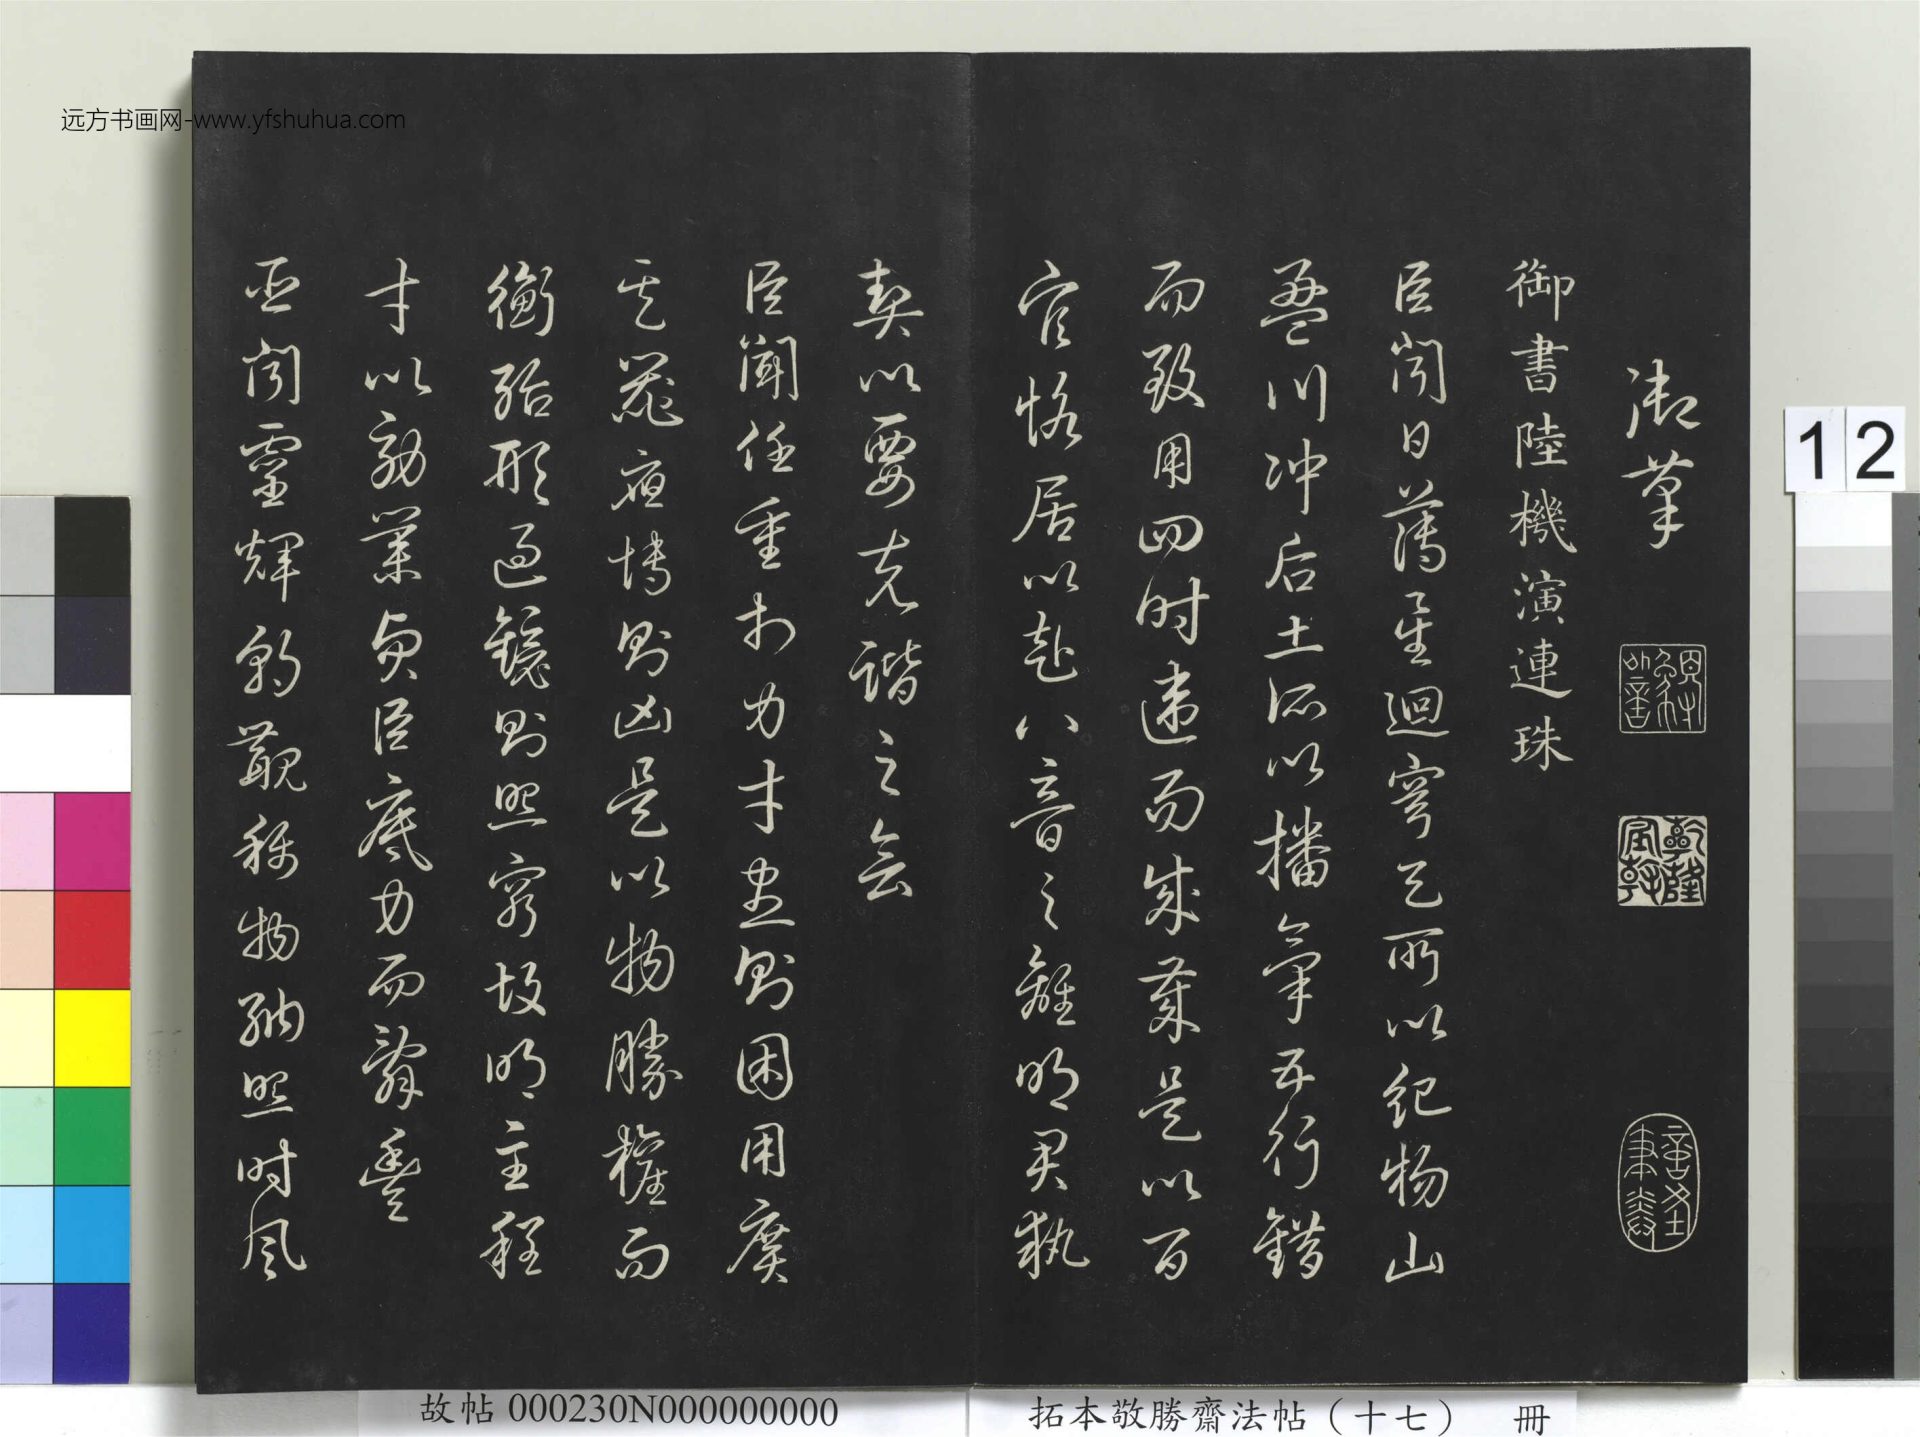 御筆
乾隆宸翰
御書陸機演連珠
臣聞日薄星迴穹天所以紀物山
盈川冲后土所以播氣五行錯
而致用四時違而成歲是以百
官恪居以赴八音之離明君執
契以要克諧之會
臣聞任重於力才盡則困用廣
其器應博則凶是以物勝權而
衡殆形過鏡則照窮故明主程
才以効業貞臣底力而辭豐
臣聞靈輝朝覯稱物納照時風
远方书画网-www.yfshuhua.com
12
故帖 000230N000000000
拓本敬勝齋法帖（十七） 冊